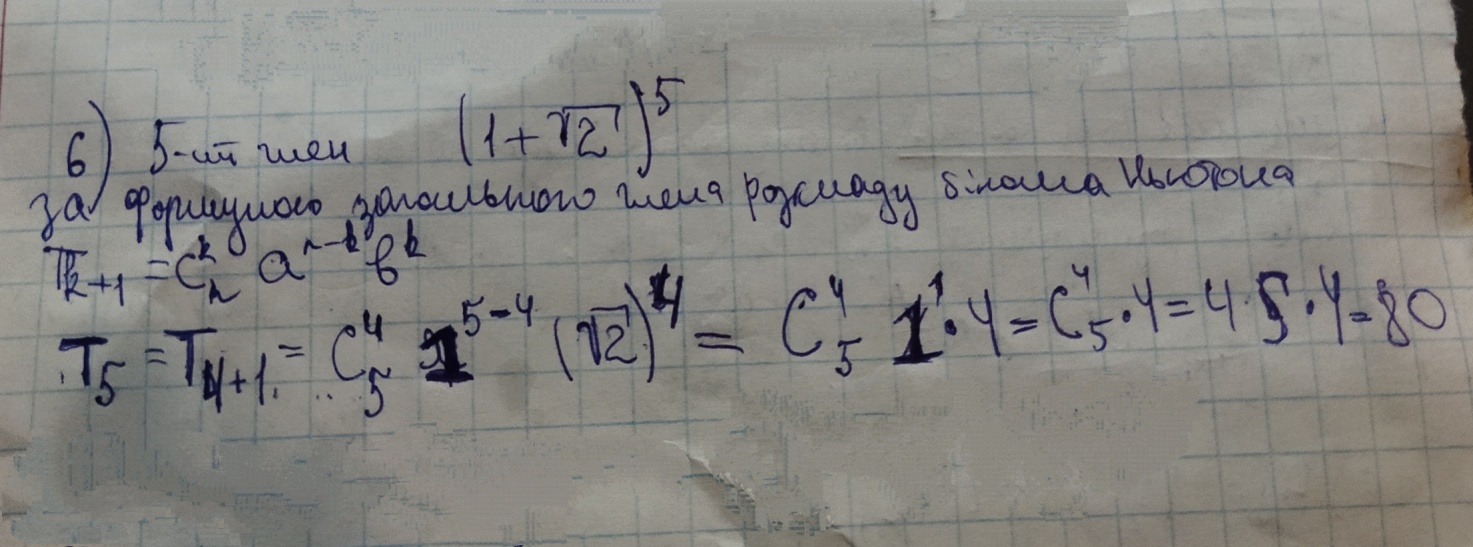 6) 5-ий член (1+√2)^5
за формулою загального члена розкладу бінома Ньютона
T_{k+1} = C_n^k a^{n-k} b^k
T_5 = T_{4+1} = C_5^4 1^{5-4} (√2)^4 = C_5^4 1^1 · 4 = C_5^4 · 4 = 4 · 5 · 4 = 80